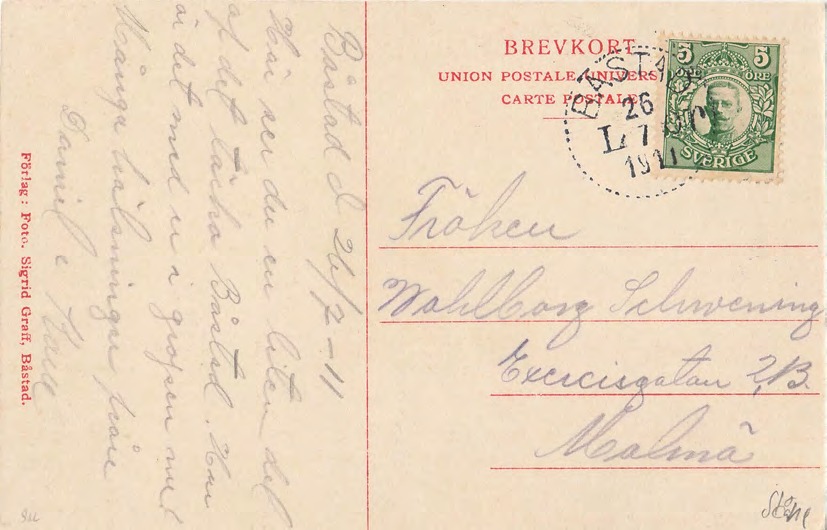 BREVKORT
UNION POSTALE UNIVERS
CARTE POSTALE
5 5
ÖRE
SVERIGE
BÅSTAD
26
7
1911
L
Fröken
Wahlborg Schwening
Exercisgatan 2,B.
Malmö
Båstad d 26/7-11
Här ser du en liten del
af det täcka Båstad. Hur
är det med er i
Många hälsningar från
Förlag: Foto. Sigrid Graff, Båstad.